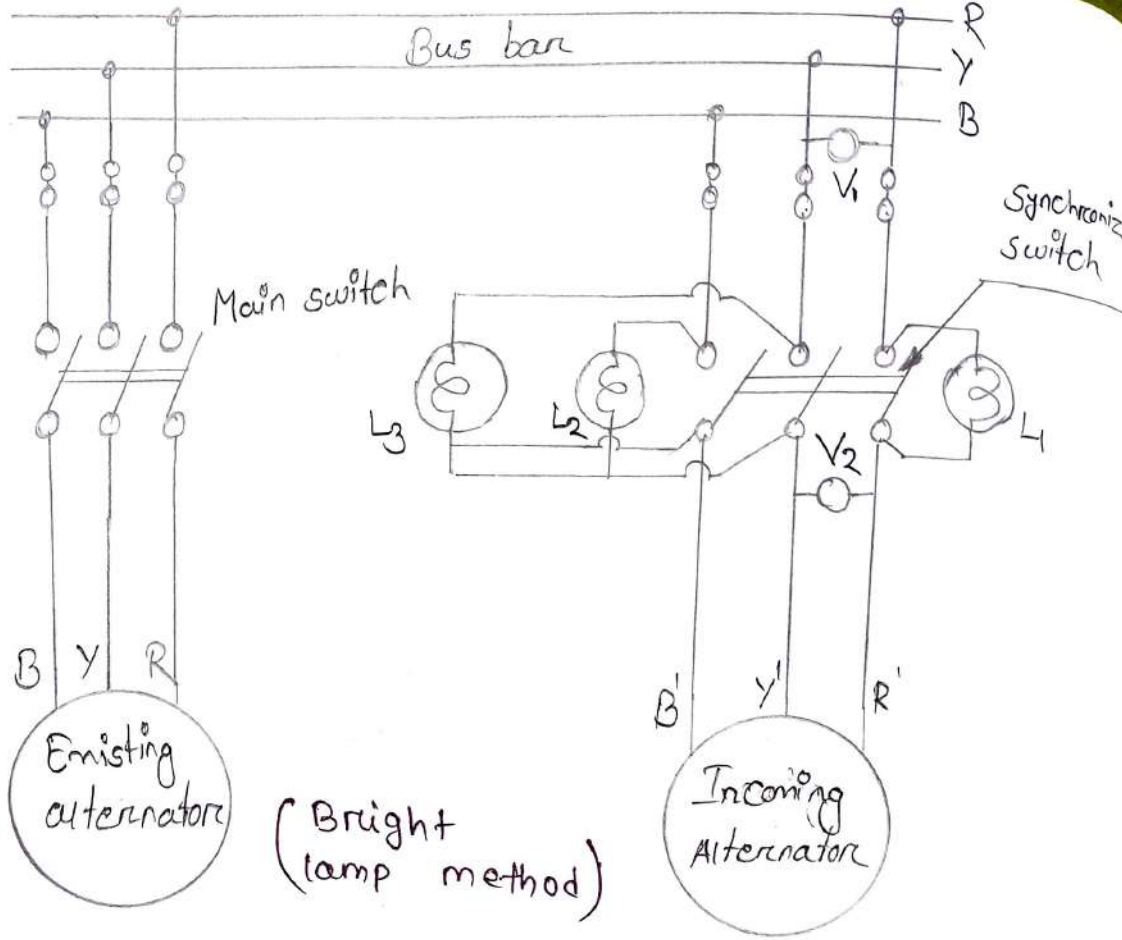 R
Bus bar
Y
B
V1
Synchroniz
switch
Main switch
L3
L2
L1
V2
B Y R
B' Y' R'
Emisting
alternator
(Bright
lamp method)
Incoming
Alternator